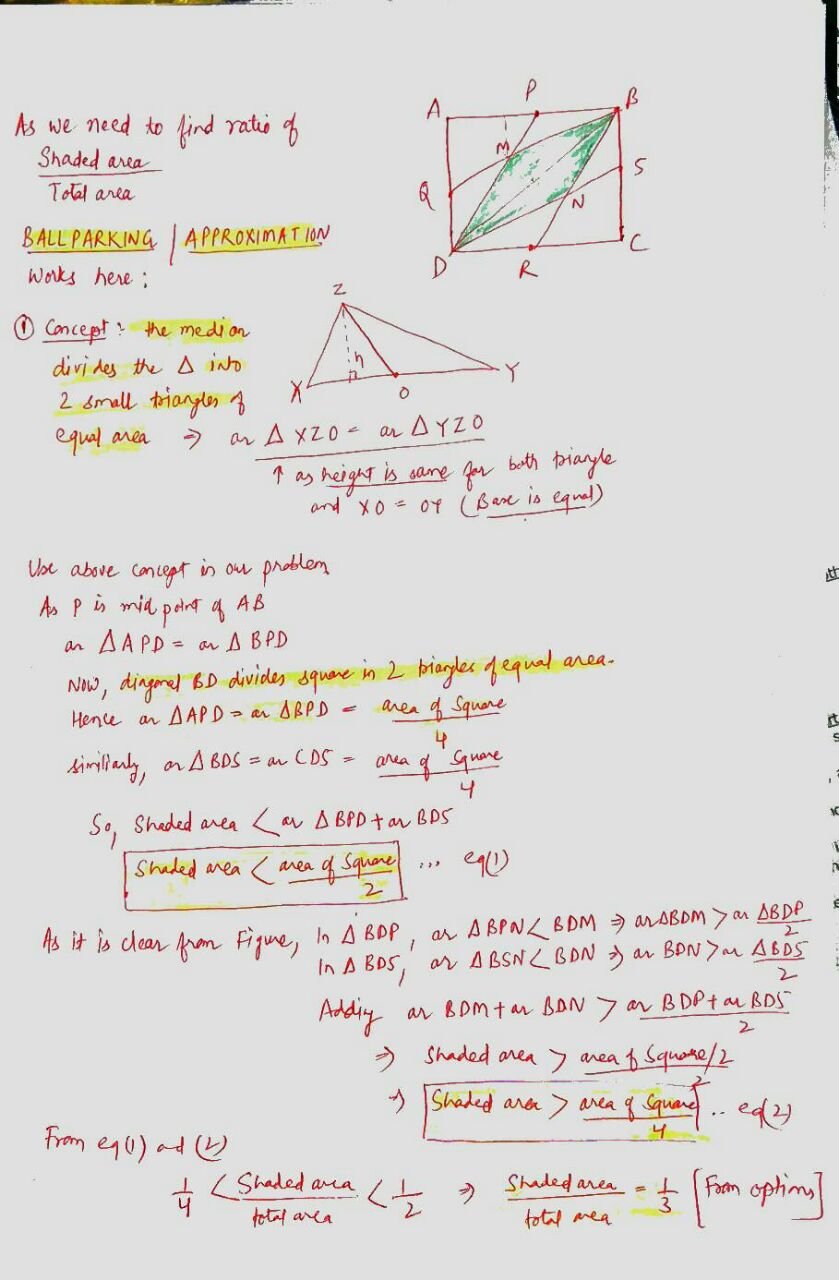 As we need to find ratio of
Shaded area
Total area
BALLPARKING / APPROXIMATION
Works here :
A P B
M S
Q N
D R C
① Concept : the median
divides the Δ into
2 small triangles of
equal area ⇒ ar Δ XZO = ar Δ YZO
Z
h
X O Y
↑ as height is same for both triangle
and XO = OY (Base is equal)
Use above concept in our problem
As P is mid point of AB
ar ΔAPD = ar Δ BPD
Now, diagonal BD divides square in 2 triangles of equal area.
Hence ar ΔAPD = ar ΔBPD = area of Square
4
similiarly, ar Δ BDS = ar CDS = area of Square
4
So, Shaded area < ar Δ BPD + ar BDS
Shaded area < area of Square ... eq(1)
2
As it is clear from Figure, In Δ BDP, ar Δ BPN < BDM ⇒ ar ΔBDM > ar ΔBDP
2
In Δ BDS, ar Δ BSN < BDN ⇒ ar BDN > ar ΔBDS
2
Adding ar BDM + ar BDN > ar BDP + ar BDS
2
⇒ Shaded area > area of Square/2
2
⇒ Shaded area > area of Square .. eq(2)
4
From eq(1) and (2)
1/4 < Shaded area < 1/2 ⇒ Shaded area = 1/3 [From options]
total area total area